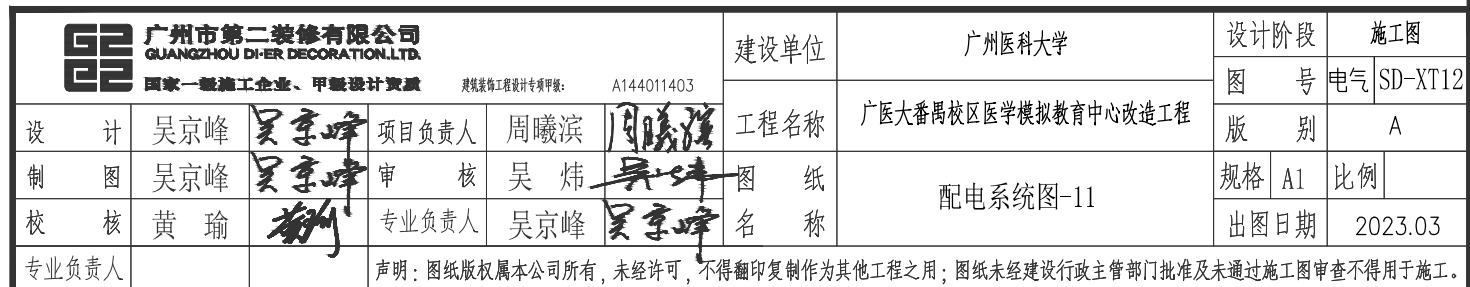 广州市第二装修有限公司
GUANGZHOU DI·ER DECORATION.LTD.
国家一级施工企业、甲级设计资质 建筑装饰工程设计专项甲级: A144011403
建设单位 广州医科大学
设计阶段 施工图
图 号 电气 SD-XT12
设 计 吴京峰 吴京峰 项目负责人 周曦滨 周曦滨
工程名称 广医大番禺校区医学模拟教育中心改造工程
版 别 A
制 图 吴京峰 吴京峰 审 核 吴 炜 吴炜
图 纸 名 称 配电系统图-11
规格 A1 比例
校 核 黄 瑜 专业负责人 吴京峰 吴京峰
出图日期 2023.03
专业负责人
声明:图纸版权属本公司所有,未经许可,不得翻印复制作为其他工程之用;图纸未经建设行政主管部门批准及未通过施工图审查不得用于施工。